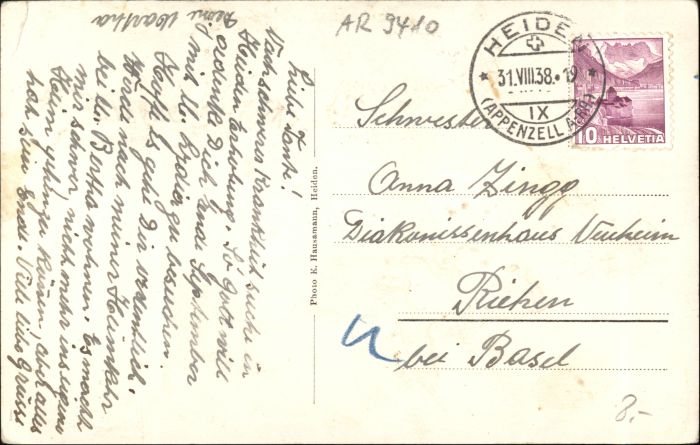 AR 9410
HEIDEN
31.VIII.38.-19
IX
(APPENZELL A.RH.)
10 HELVETIA
Schwester
Anna Zingg
Diakonissenhaus Neuheim
Riehen
bei Basel
8.-
Photo E. Hausamann, Heiden.
Liebe Tante!
Nach schwerer Krankheit suche in
Heiden Erholung. So Gott will
gedenke Dich Ende September
mit Lydia zu besuchen.
Hoffe es gehe Dir ordentlich.
Werde nach meiner Heimkehr
bei Berthas wohnen. Es macht
mir schwer nicht mehr ins eigene
Heim gehen zu können, aber alles
hat sein Ende. Viele liebe Grüsse
Deine Martha